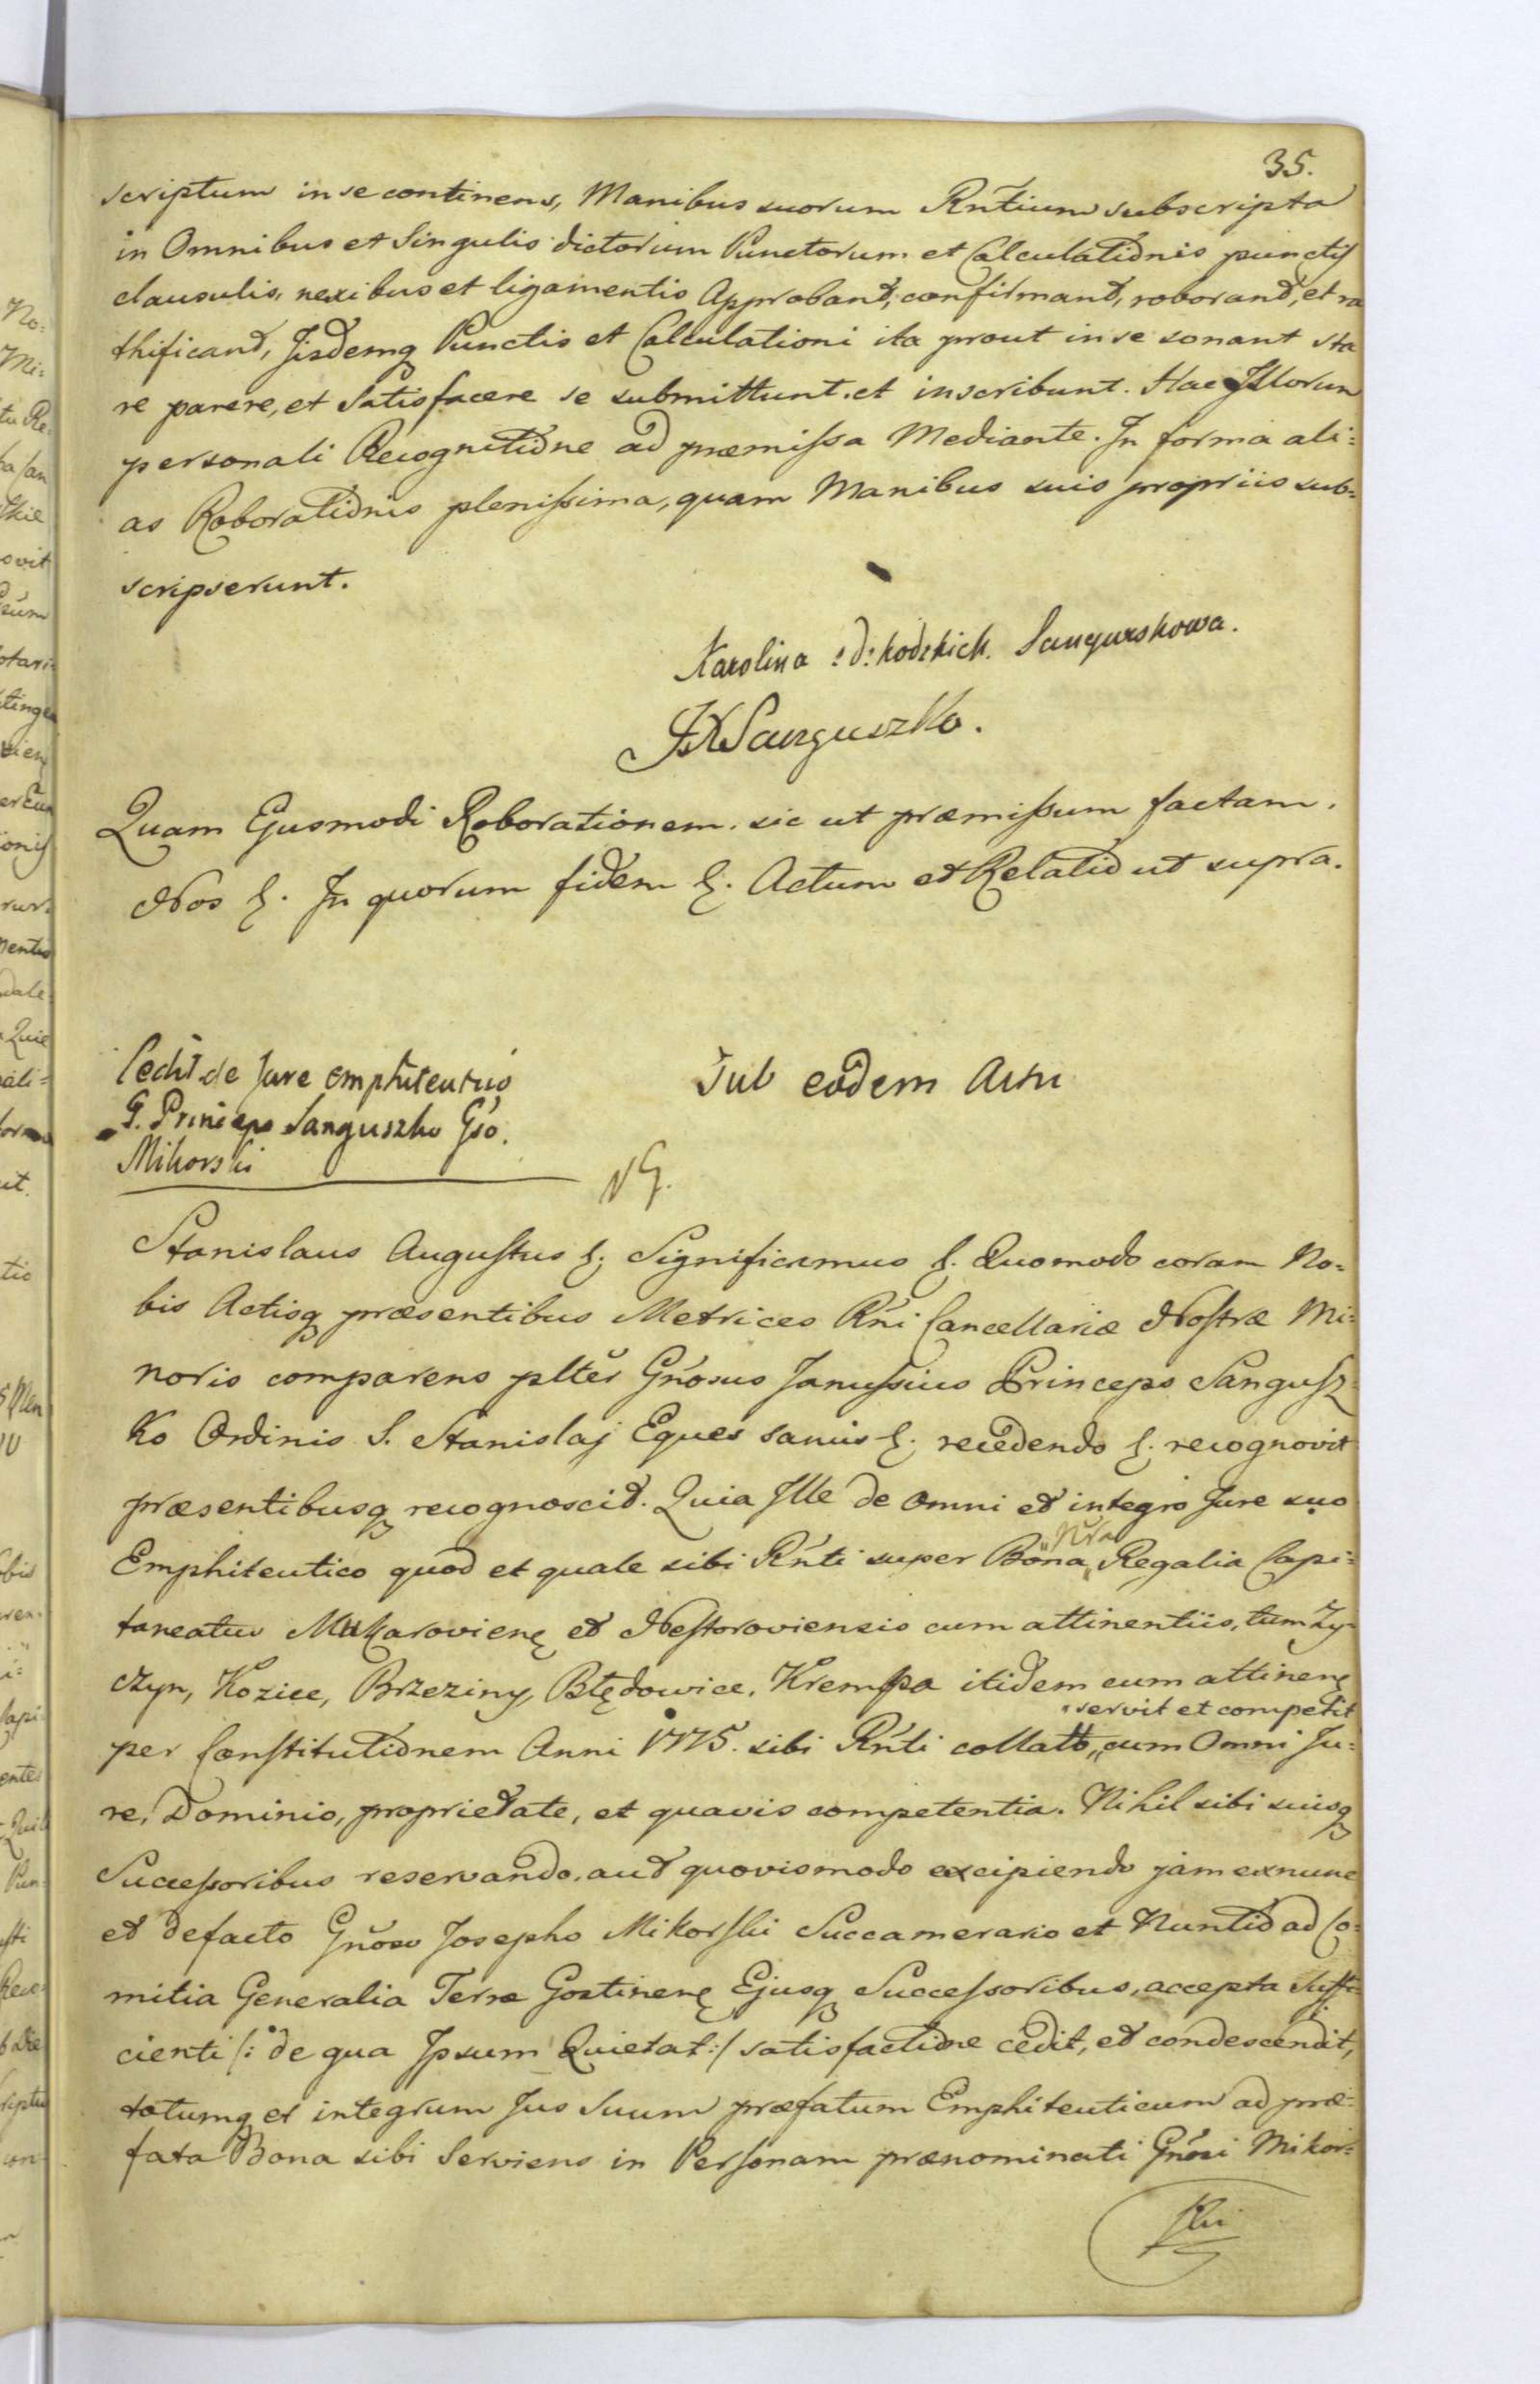 35.
scriptum in se continens, Manibus suorum Rntium subscripta
in Omnibus et Singulis dictorum Punctorum et Calculationis punctis
clausulis, nexibus et ligamentis Approbant, confirmant, roborant, et ra
thificant, Jisdemq Punctis et Calculationi ita prout in se sonant sta
re parere, et Satisfacere se submittunt et inscribunt. Hac Illorum
personali Recognitione ad præmissa Mediante. In forma ali=
as Roborationis plenissima, quam Manibus suis propriis sub=
scripserunt.
Karolina :d: hodzkich Sanguszkowa.
Sanguszko.
Quam Ejusmodi Roborationem sic ut præmissum factam.
Nos &. In quorum fidem &. Actum et Relatio ut supra.
Sub eodem Actu
de Jure emphiteutico
G. Princeps Sanguszko Gso.
Mikorski
NG.
Stanislaus Augustus &; Significamus &. Quomodo coram No=
bis Actisq præsentibus Metrices Rni Cancellariæ Nostræ Mi=
noris comparens plter Gnosus Janussius Princeps Sangusz=
ko Ordinis S. Stanislaj Eques sanus &; recedendo &. recognovit
præsentibusq recognoscit. Quia Ille de omni et integro Jure suo
Emphiteutico quod et quale sibi Rnti super Bona „Nra„ Regalia Capi=
taneatus Makaroviens et Nestoroviensis cum attinentiis, tum Zy=
czyn, Kozice, Brzeziny, Błędowice, Krempa itidem cum attinens
„servit et competit
per Constitutionem Anni 1775. sibi Rnti collato,„ cum Omni Ju=
re, Dominio, proprietate, et quavis competentia. Nihil sibi suisq
Successoribus reservando, aut quovismodo excipiendo jam exnunc
et defacto Gnoso Josepho Mikorski Succamerario et Nuntio ad Co=
mitia Generalia Terræ Gostinens Ejusq Successoribus, accepta suffi=
cienti /: de qua Ipsum Quietat :/ satisfactione cedit, et condescendit,
totumq et integrum Jus Suum præfatum Emphiteuticum ad præ=
fata Bona sibi Serviens in Personam prænominati Gnosi Mikor=
ski